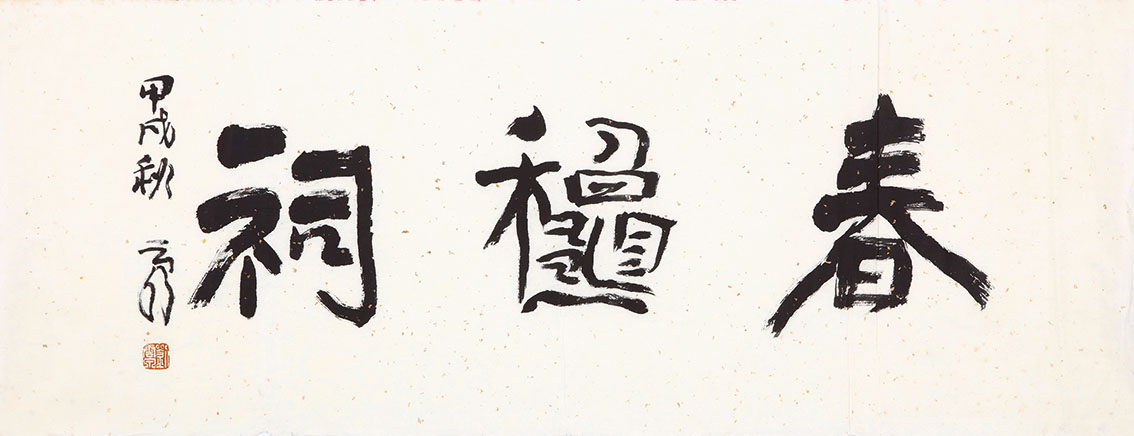 春龝祠
甲戌秋